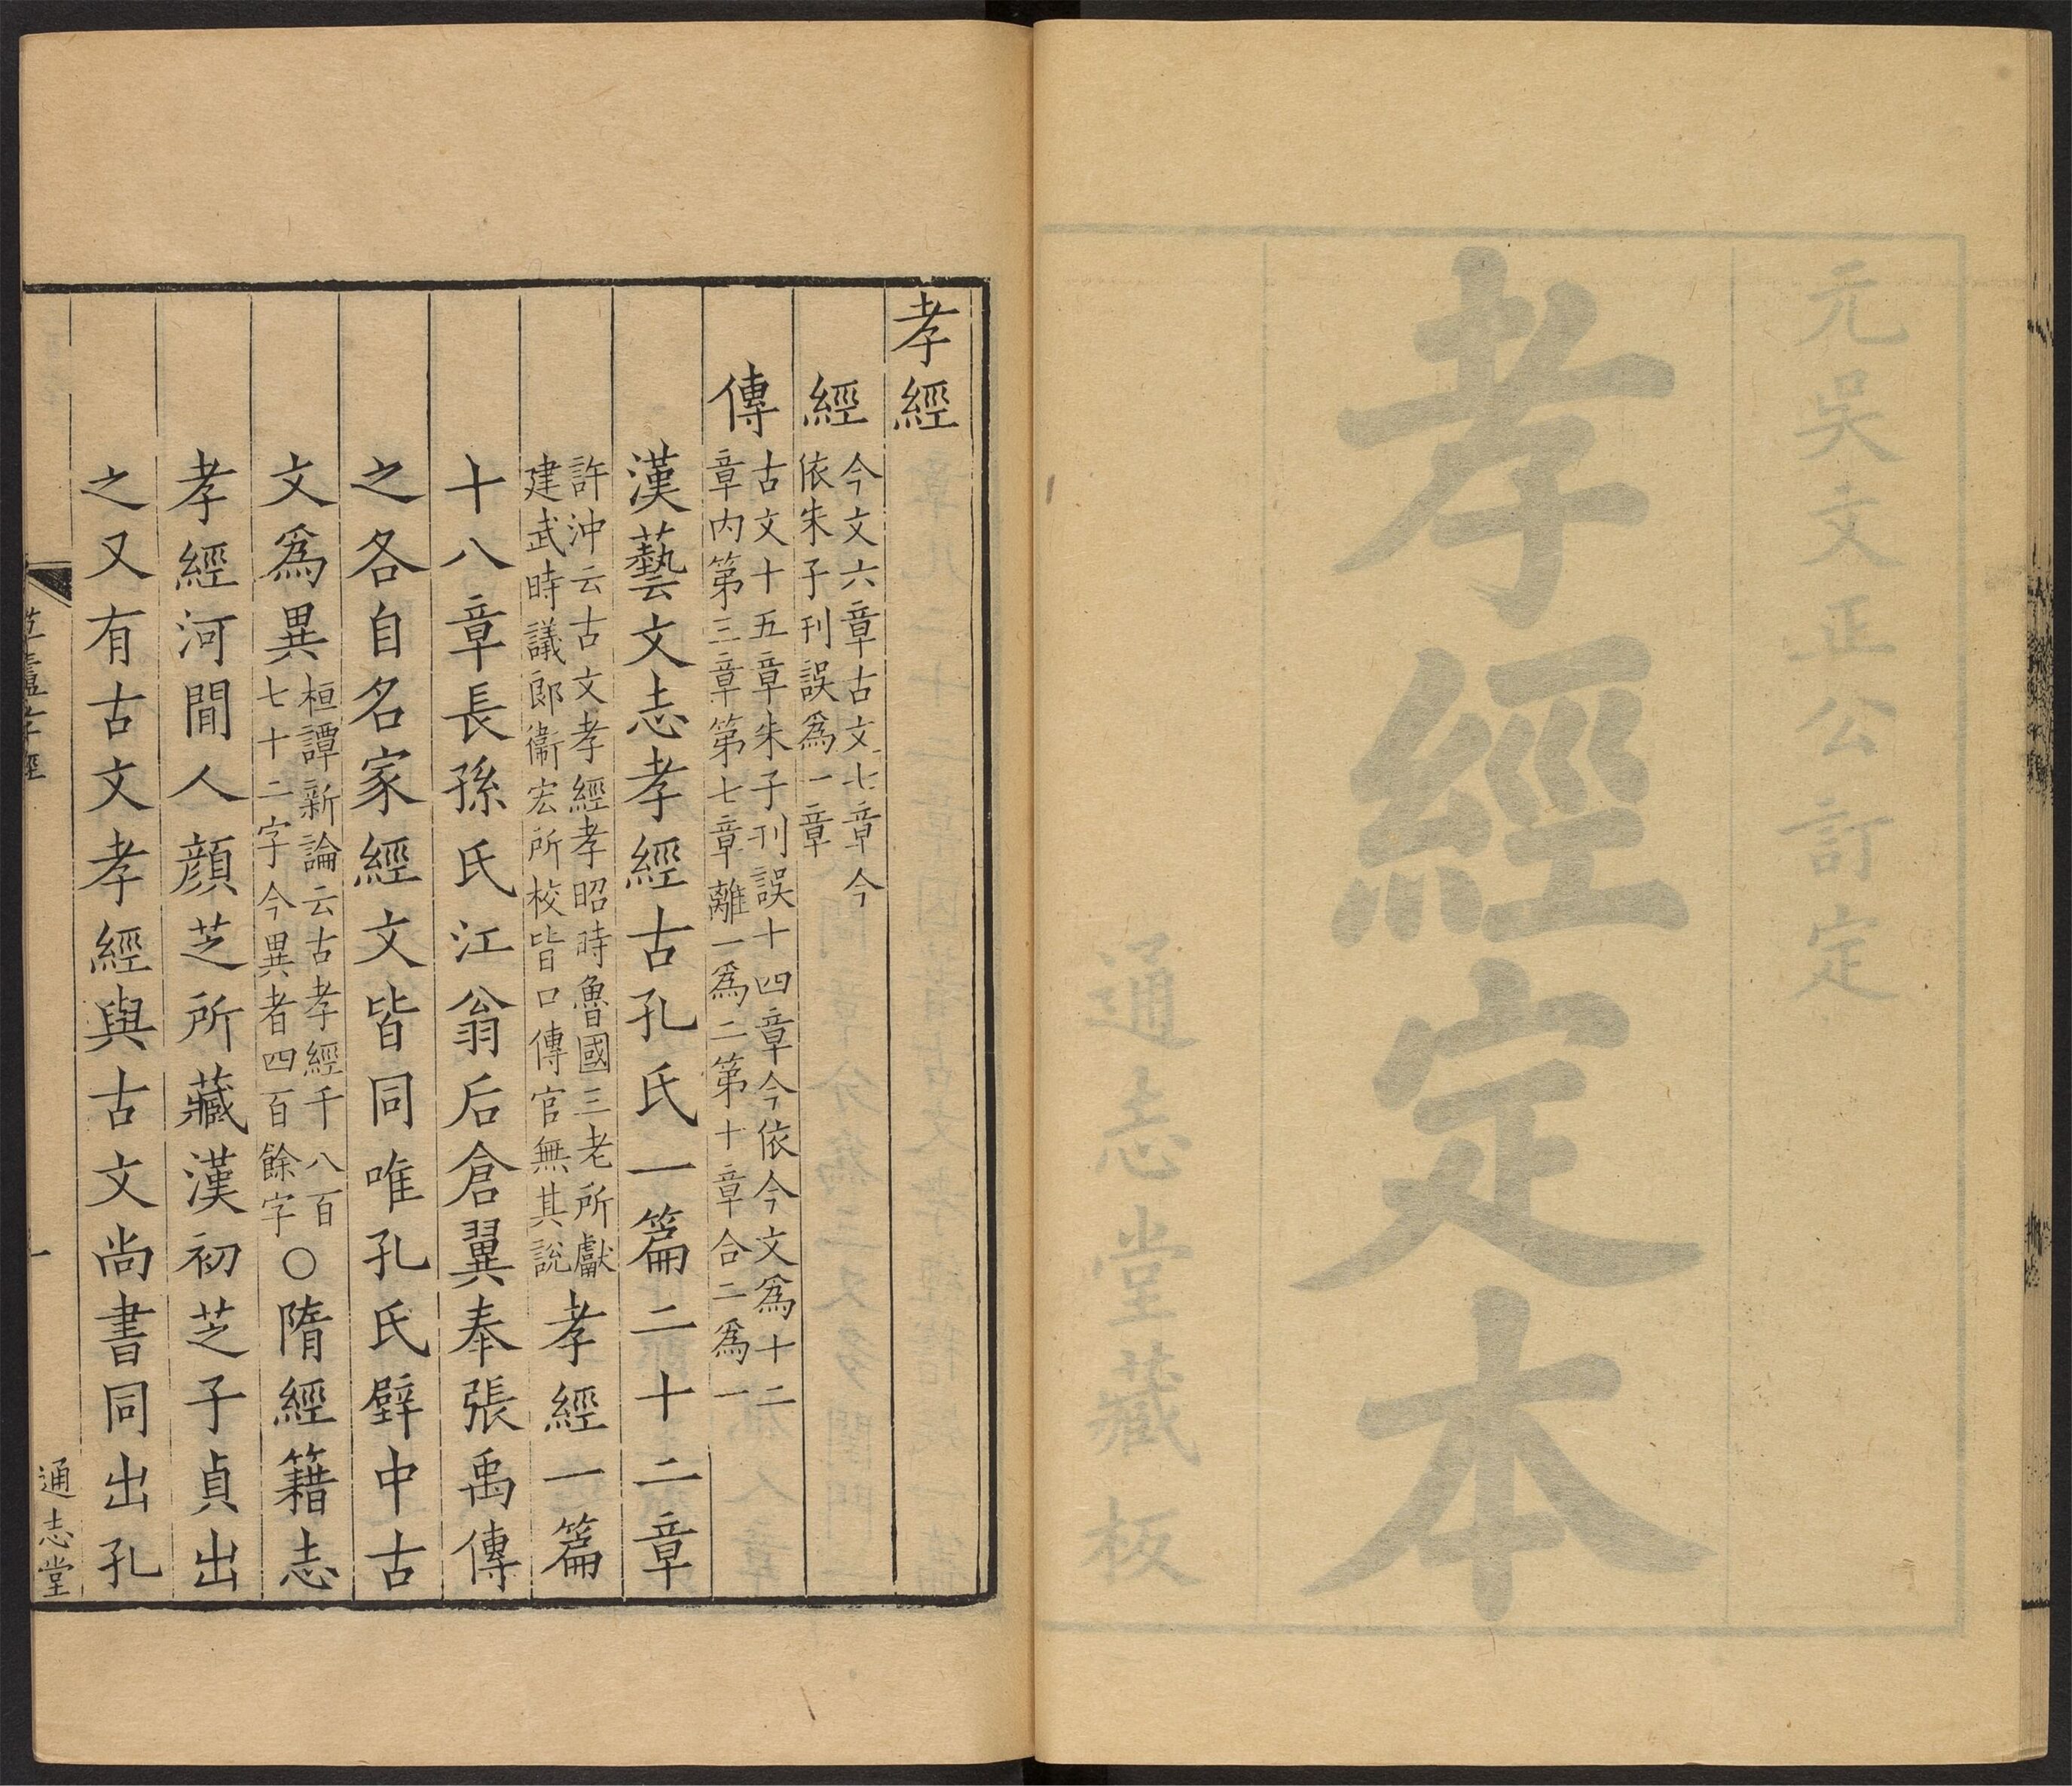 元吳文正公訂定
孝經定本
通志堂藏板
孝經
經
今文六章古文七章今
依朱子刊誤爲一章
傳
古文十五章朱子刊誤十四章今依今文爲十二
章内第三章第七章離一爲二第十章合二爲一
漢藝文志孝經古孔氏一篇二十二章
許沖云古文孝經孝昭時魯國三老所獻
建武時議郎衞宏所校皆口傳官無其說
孝經一篇
十八章長孫氏江翁后倉翼奉張禹傳
之各自名家經文皆同唯孔氏壁中古
文爲異
桓譚新論云古孝經千八百
七十二字今異者四百餘字
○隋經籍志
孝經河間人顔芝所藏漢初芝子貞出
之又有古文孝經與古文尚書同出孔
孝經
一
通志堂